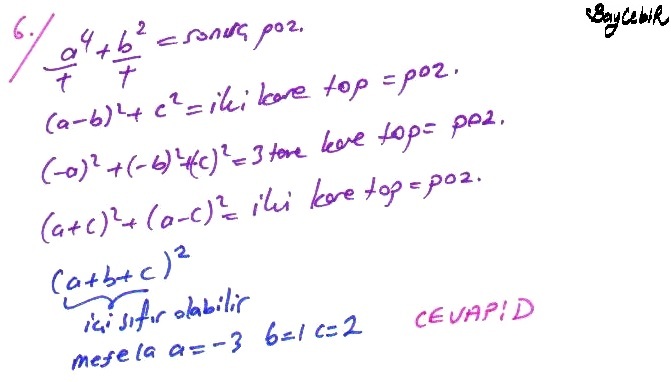 BayCebiR
6. a⁴ + b² = sonuç poz.
+ +
(a-b)² + c² = iki kare top = poz.
(-a)² + (-b)² + (c)² = 3 tane kare top = poz.
(a+c)² + (a-c)² = iki kare top = poz.
(a+b+c)²
içi sıfır olabilir
mesela a = -3 b = 1 c = 2 CEVAP D